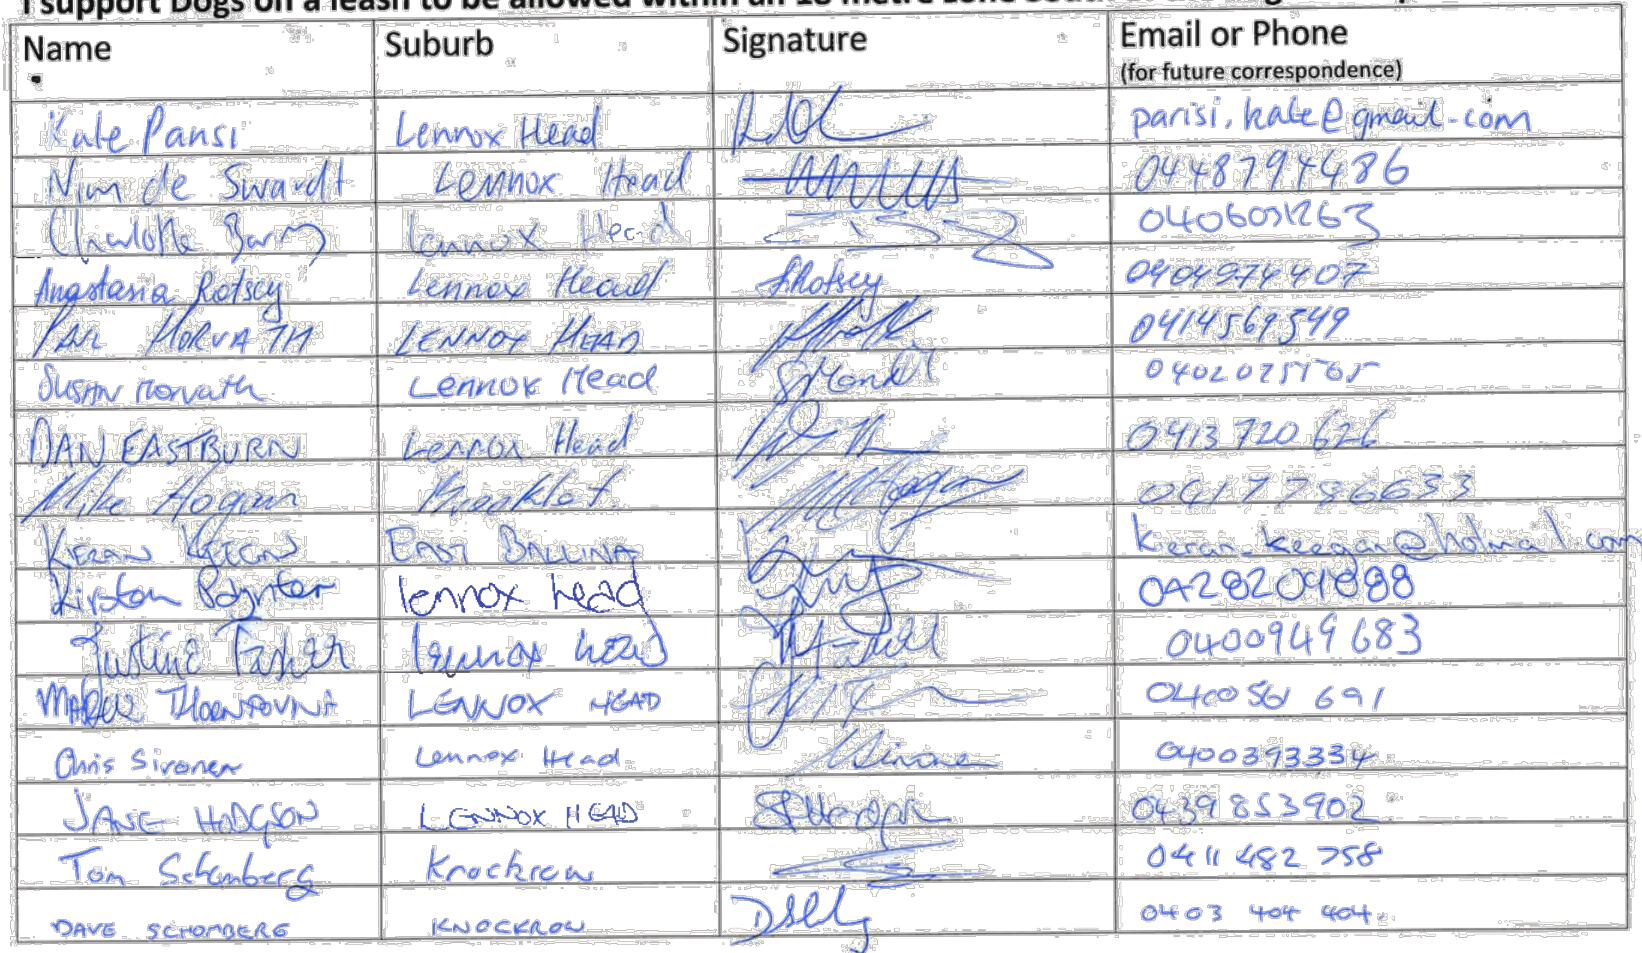 I support Dogs on a leash to be allowed within an 18 metre zone
Name Suburb Signature Email or Phone
(for future correspondence)
Kate Parisi Lennox Head parisi.kate@gmail.com
Nim de Swardt Lennox Head 0448794486
Charlotte Lennox Head
Anastasia Rotsey Lennox Head Rotsey 0404974407
HORVATH LENNOX HEAD 0414569549
Susan Horvath Lennox Head
DAN EASTBURN Lennox Head 0413 720 626
Mike Hogan MHogan
KIERAN KEEGAN EAST BALLINA kieran_keegan@hotmail.com
Kirsten Poynter lennox head 0428209888
Justine Lennox head 0400949683
LENNOX HEAD
Chris Sironen Lennox Head 0400393334
JANE HODGSON LENNOX HEAD 0439 853902
Tom Schomberg Knockrow 0411 482 758
DAVE SCHOMBERG KNOCKROW 0403 404 404